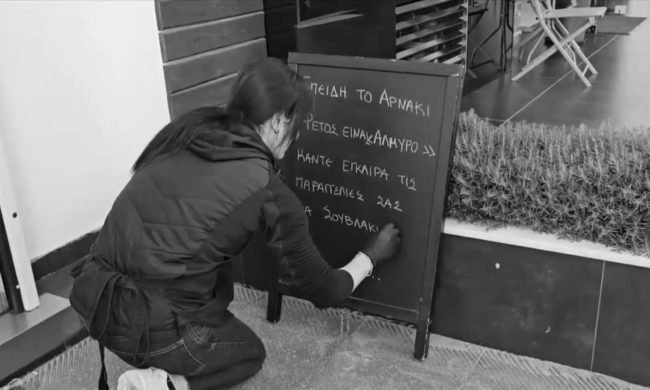 ΕΠΕΙΔΗ ΤΟ ΑΡΝΑΚΙ
ΦΕΤΟΣ ΕΙΝΑΙ «ΑΛΜΥΡΟ»
ΚΑΝΤΕ ΕΓΚΑΙΡΑ ΤΙΣ
ΠΑΡΑΓΓΕΛΙΕΣ ΣΑΣ
ΣΟΥΒΛΑΚΙ